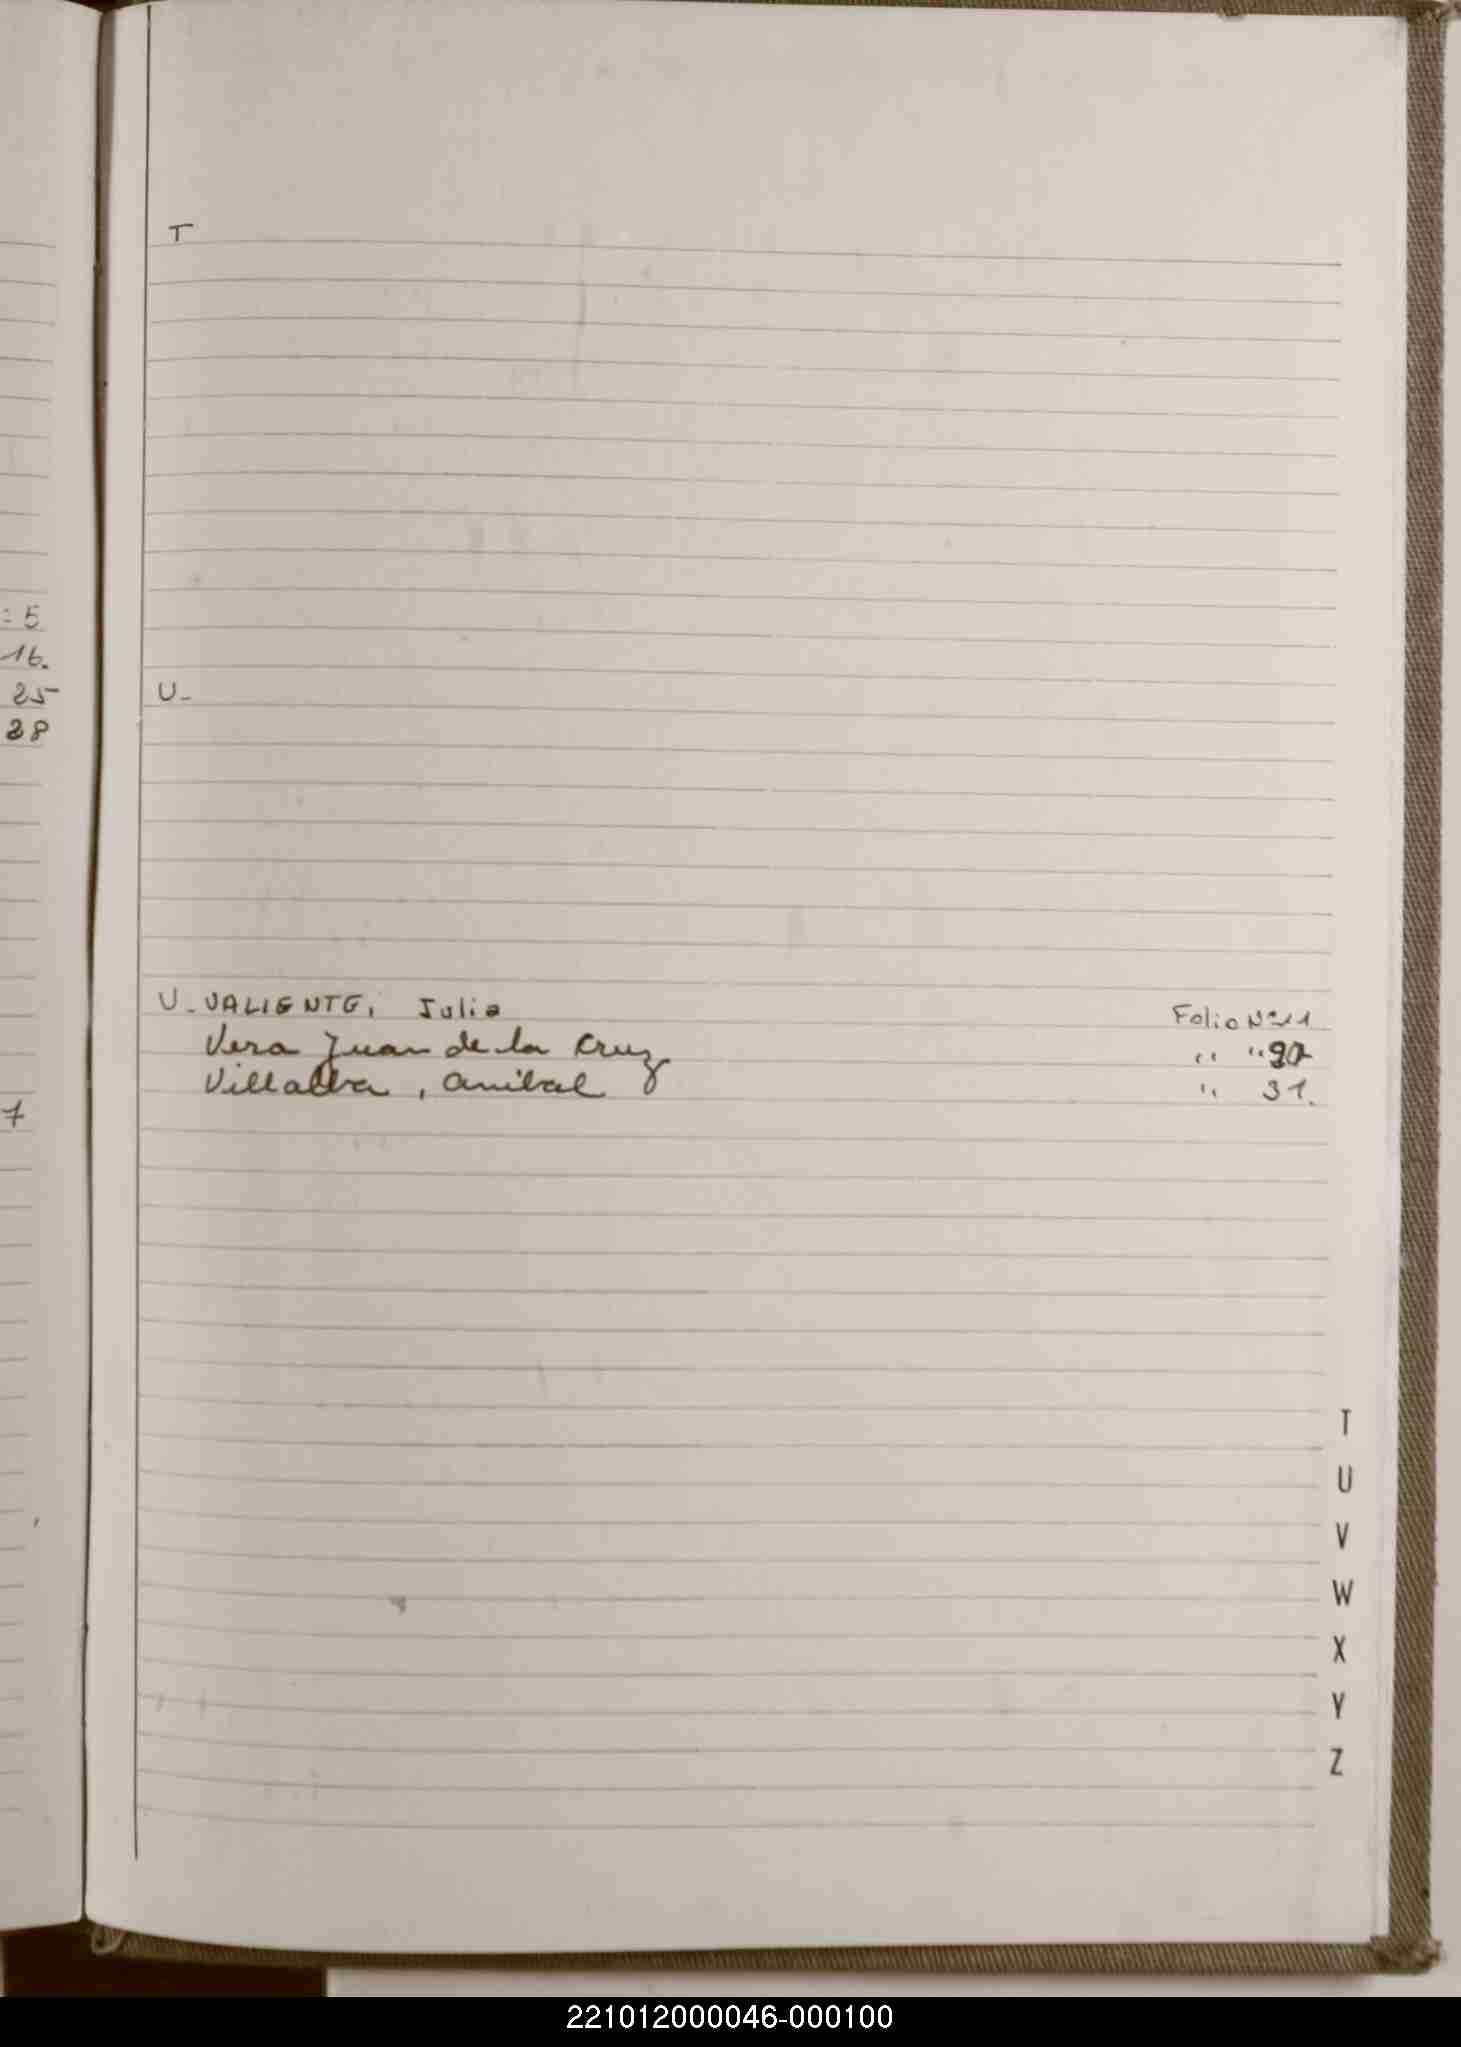 : 5
16.
25
28
7
T
U-
U-VALIENTE, Julia Folio Nº 11
Vera Juan de la Cruz " "
Villalba, Anibal " 31.
T
U
V
W
X
Y
Z
221012000046-000100